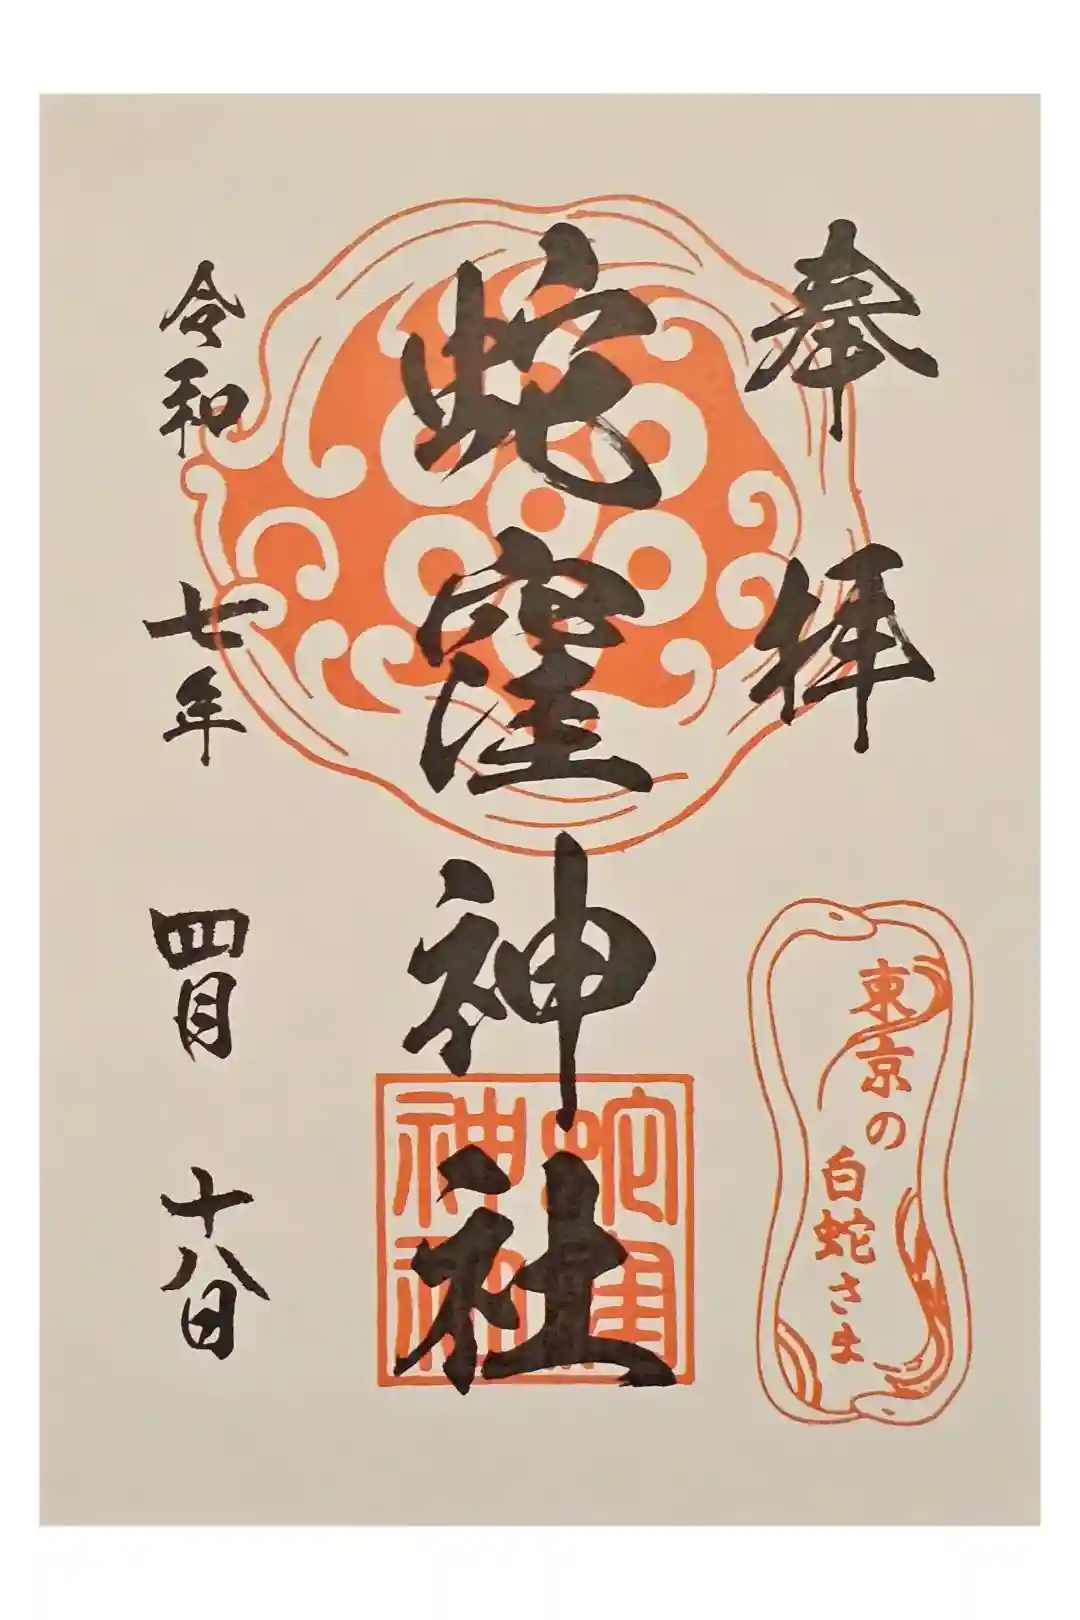 奉拝
東京の
白蛇さま
蛇窪神社
蛇窪
神社
令和七年四月十八日